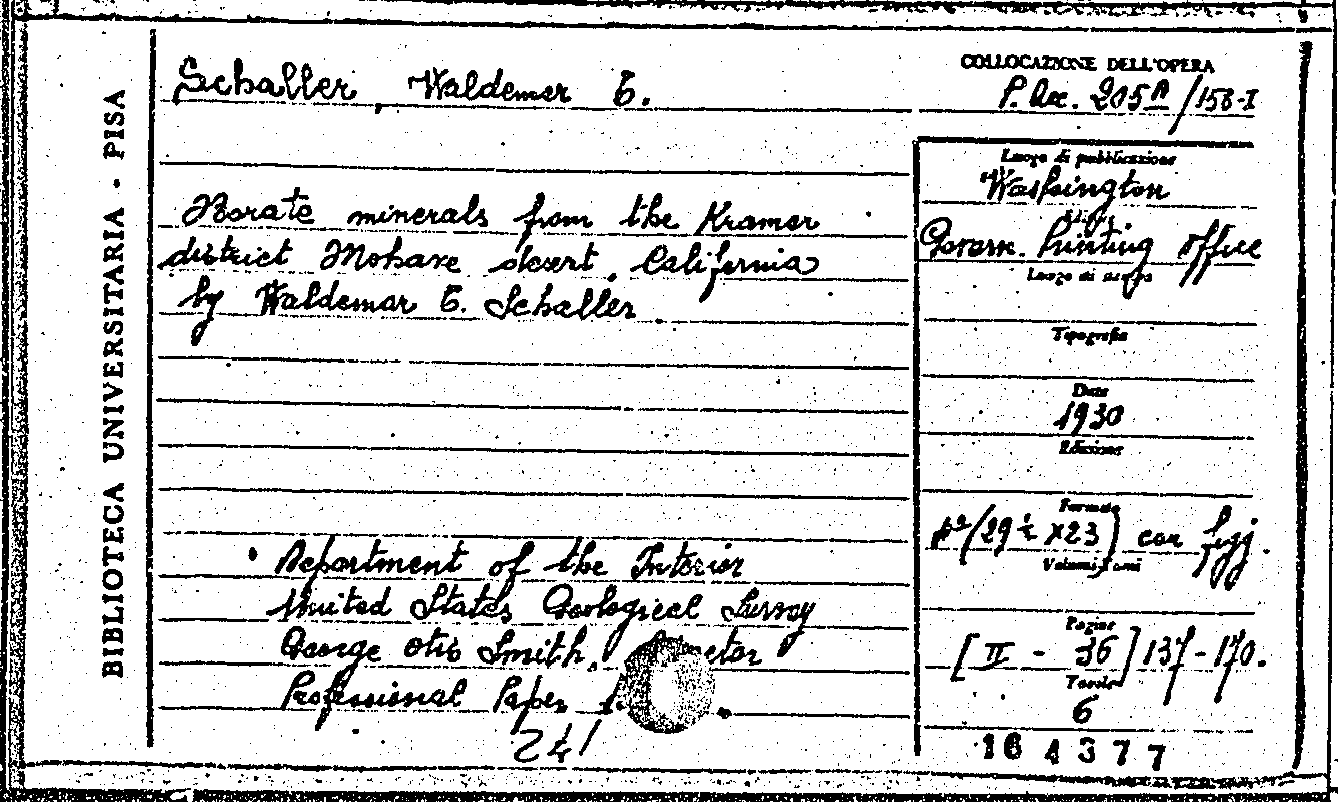 BIBLIOTECA UNIVERSITARIA - PISA
Schaller, Waldemar T.
Borate minerals from the Kramer
district Mohave desert, California
by Waldemar T. Schaller.
Department of the Interior
United States Geological Survey
George Otis Smith,
Professional Paper
241
COLLOCAZIONE DELL'OPERA
P. Acc. 205A/158-I
Luogo di pubblicazione
Washington
Govern. Printing office
Luogo di stampa
Tipografia
Data
1930
Edizione
Formato
(29 ½ x23) con figg.
Volumi
Pagine
[II - 36] 137-170.
Tavole
6
164377